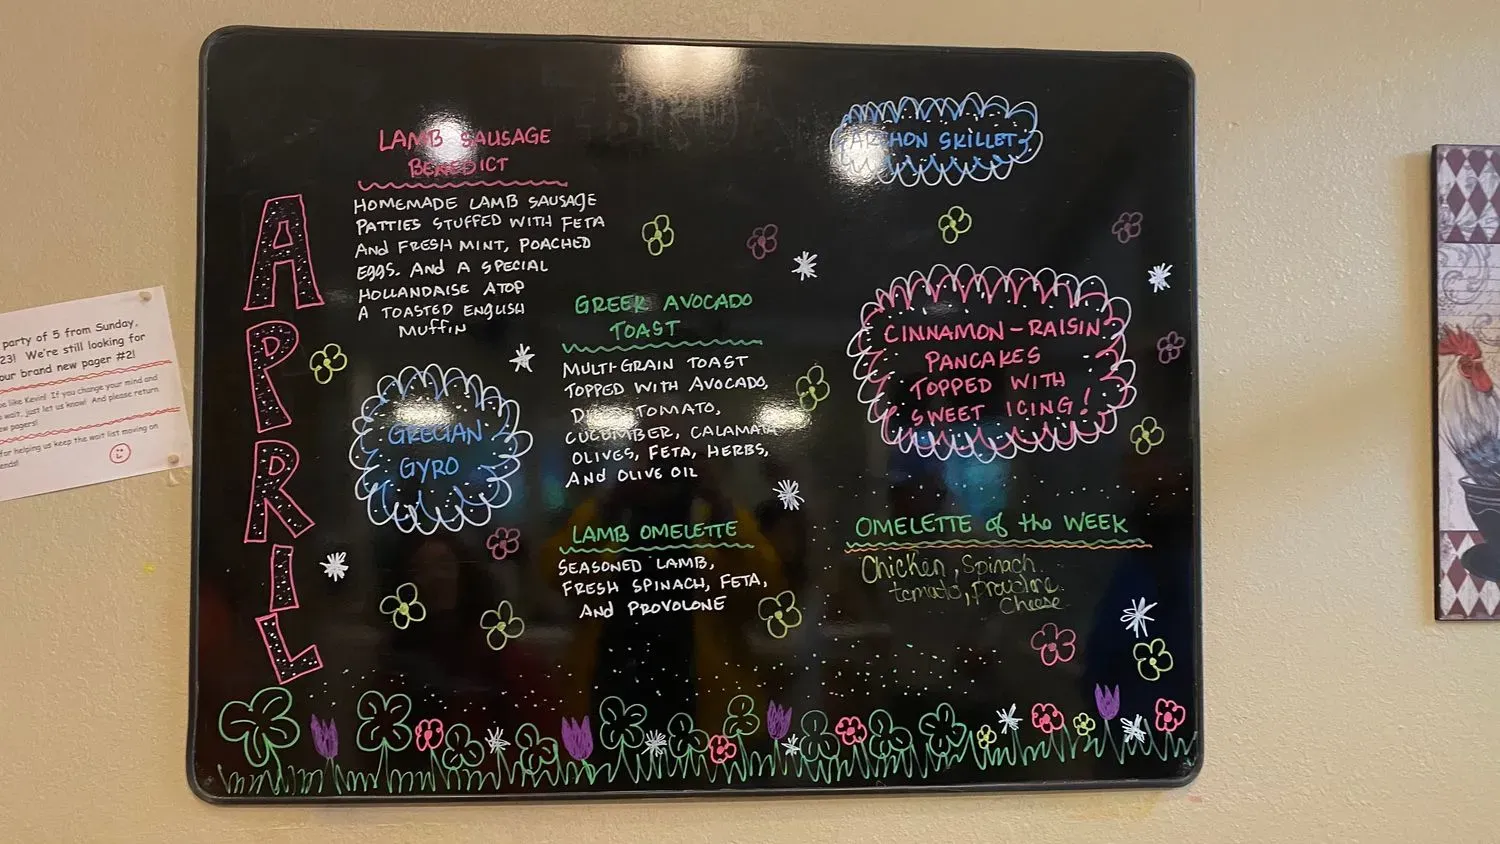 APRIL
LAMB SAUSAGE
BENEDICT
HOMEMADE LAMB SAUSAGE
PATTIES STUFFED WITH FETA
AND FRESH MINT, POACHED
EGGS. AND A SPECIAL
HOLLANDAISE ATOP
A TOASTED ENGLISH
MUFFIN
GRECIAN
GYRO
GREEK AVOCADO
TOAST
MULTI-GRAIN TOAST
TOPPED WITH AVOCADO,
TOMATO,
CUCUMBER, CALAMATA
OLIVES, FETA, HERBS,
AND OLIVE OIL
LAMB OMELETTE
SEASONED LAMB,
FRESH SPINACH, FETA,
AND PROVOLONE
SKILLET
CINNAMON-RAISIN
PANCAKES
TOPPED WITH
SWEET ICING!
OMELETTE of the WEEK
Chicken, Spinach
tomato, provolone
Cheese
party of 5 from Sunday,
23! We're still looking for
our brand new pager #2!
like Kevin! If you change your mind and
wait, just let us know! And please return
pagers!
for helping us keep the wait list moving on